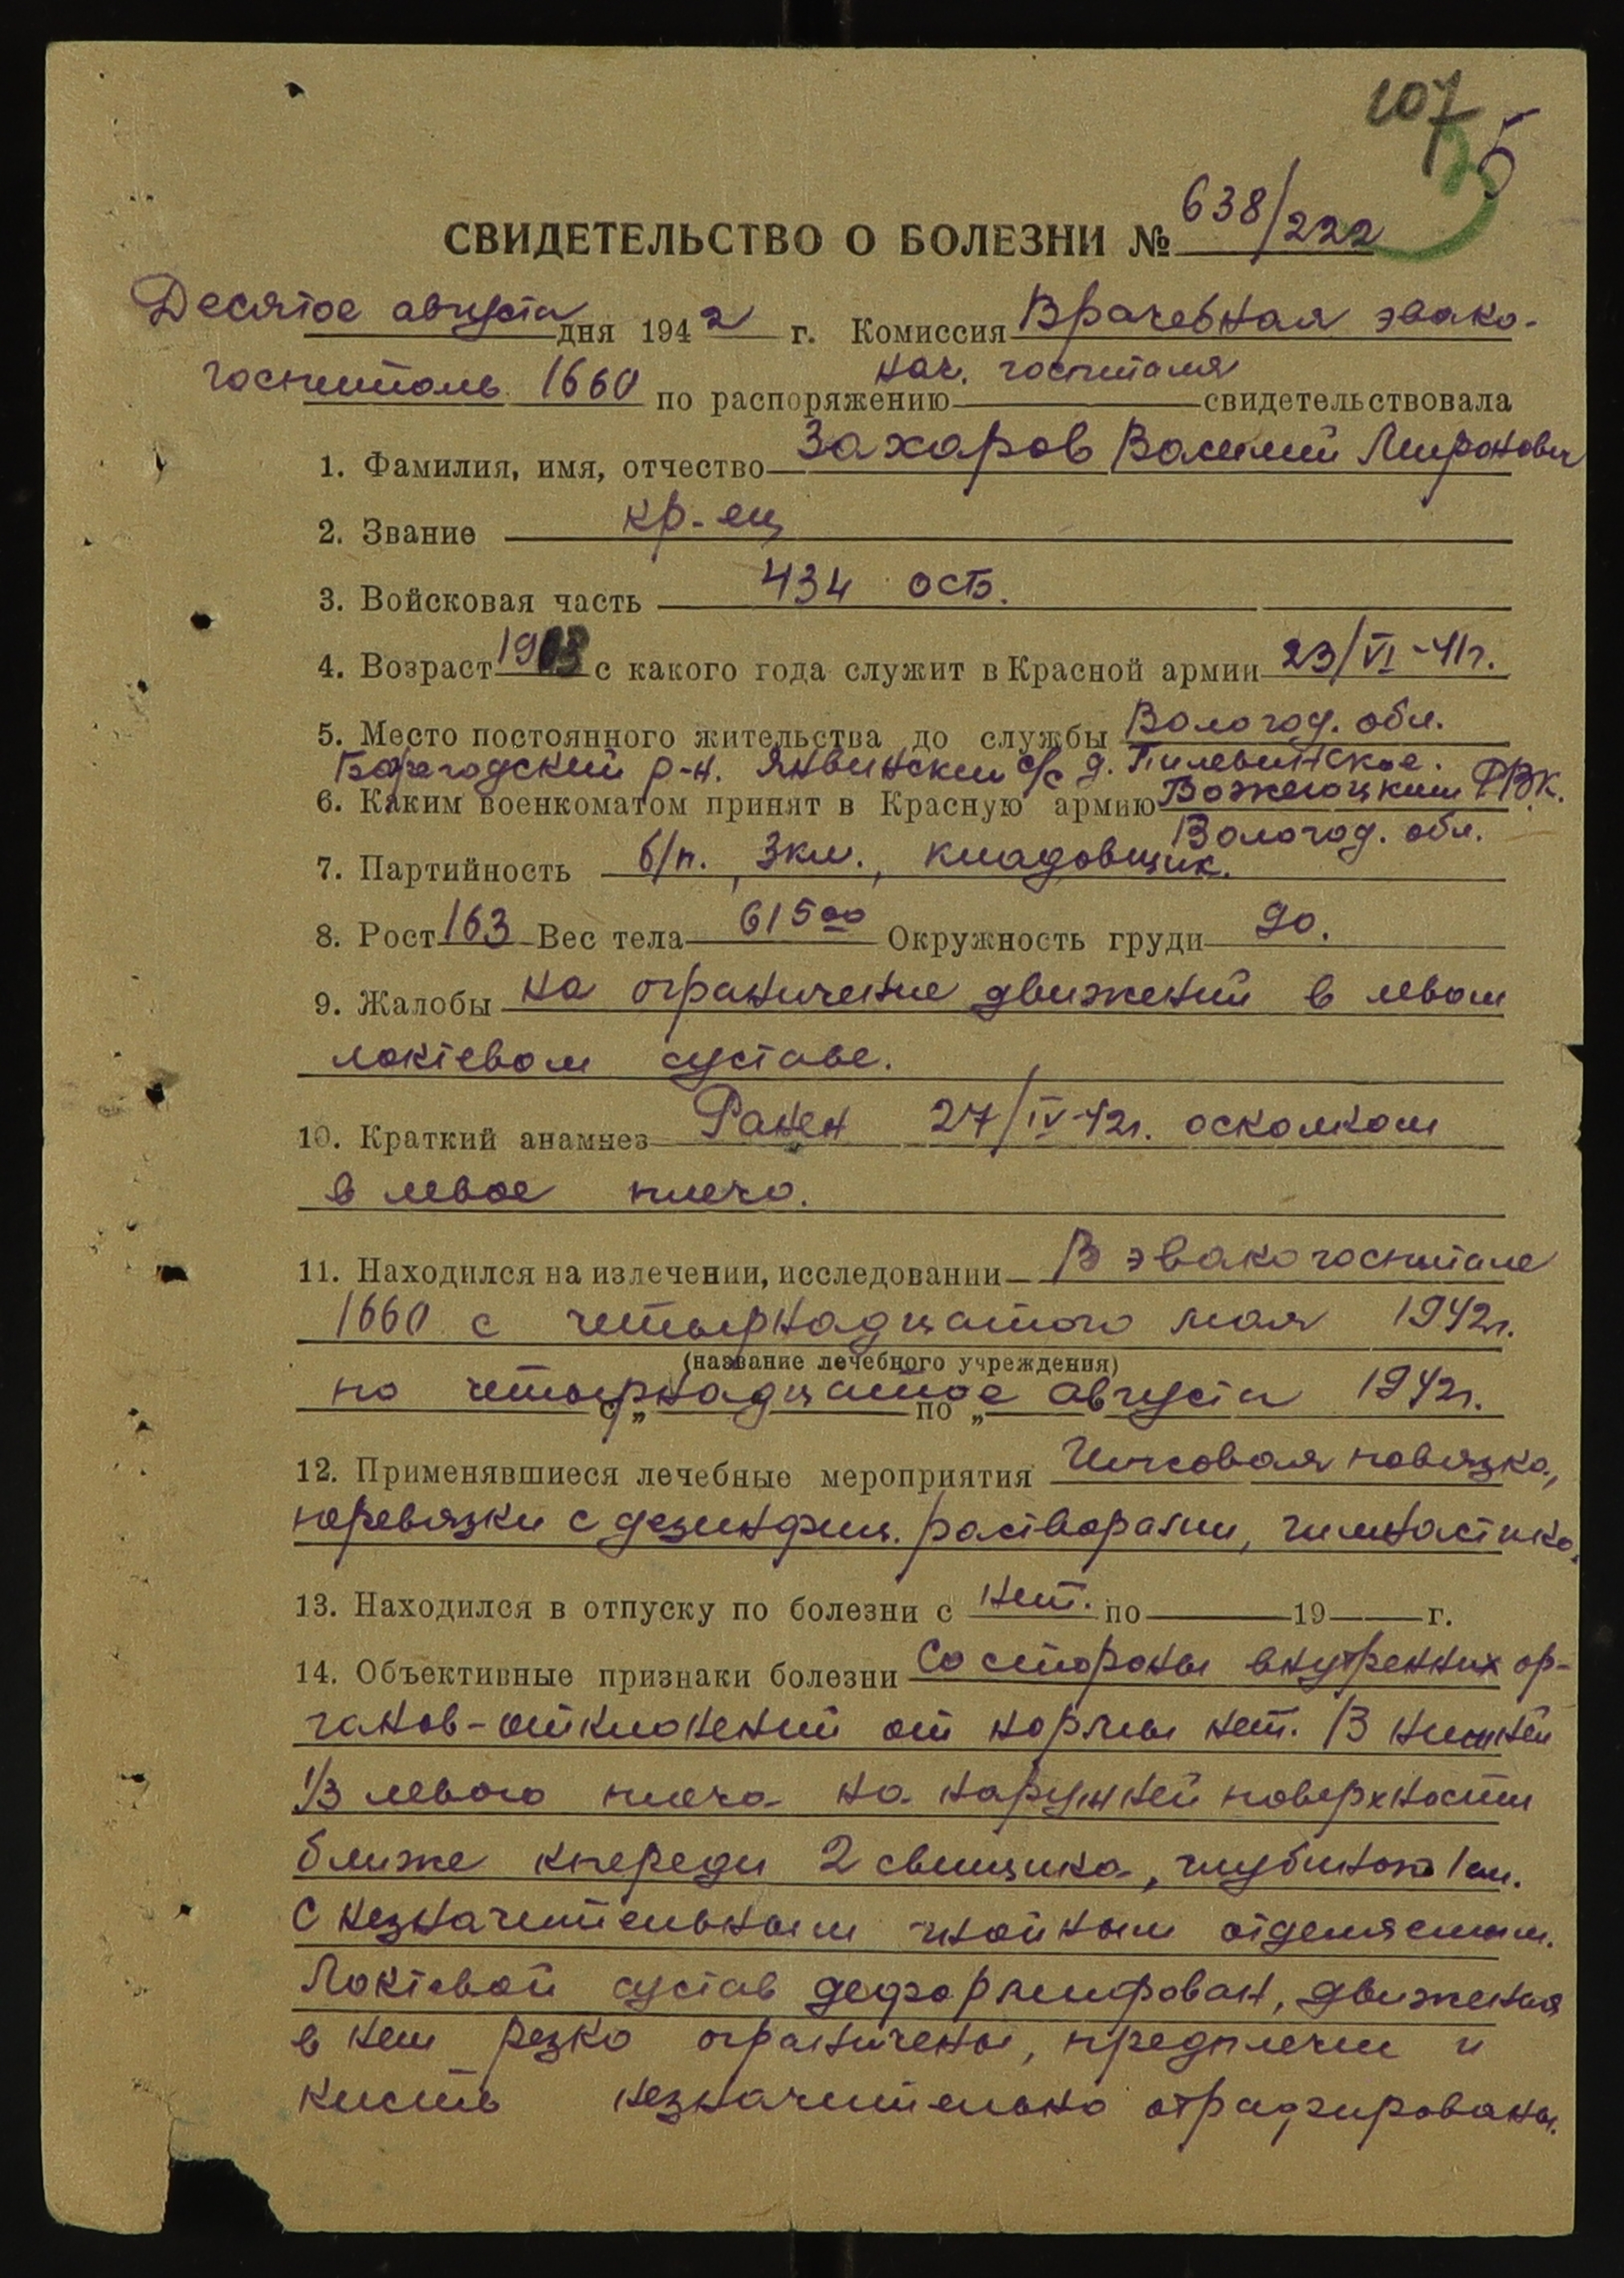 107
5
СВИДЕТЕЛЬСТВО О БОЛЕЗНИ № 638/222
Десятое августа дня 1942 г. Комиссия Врачебная эвако-
госпиталь 1660 по распоряжению нач. госпиталя свидетельствовала
1. Фамилия, имя, отчество Захаров Василий Миронович
2. Звание кр-ец
3. Войсковая часть 434 ОСБ.
4. Возраст 1903 с какого года служит в Красной армии 23/VI-41г.
5. Место постоянного жительства до службы Вологод. обл.
р-н. с/с д.
6. Каким военкоматом принят в Красную армию Вожегоцким РВК.
Вологод. обл.
7. Партийность б/п., 3кл., кладовщик.
8. Рост 163 Вес тела 61500 Окружность груди 90.
9. Жалобы на ограничение движений в левом
локтевом суставе.
10. Краткий анамнез Ранен 27/IV-42г. осколком
в левое плечо.
11. Находился на излечении, исследовании В эвакогоспитале
1660 с четырнадцатого мая 1942г.
(название лечебного учреждения)
по четырнадцатое августа 1942г.
с „ по „
12. Применявшиеся лечебные мероприятия Гипсовая повязка,
перевязки с дезинфиц. растворами, гимнастика.
13. Находился в отпуску по болезни с нет. по 19 г.
14. Объективные признаки болезни Со стороны внутренних ор-
ганов-отклонений от нормы нет. В нижней
1/3 левого плеча на наружней поверхности
ближе кпереди 2 свищика, глубиною 1 см.
с незначительным гнойным отделяемым.
Локтевой сустав деформирован, движения
в нем резко ограничены, предплечие и
кисть незначительно атрафированы.